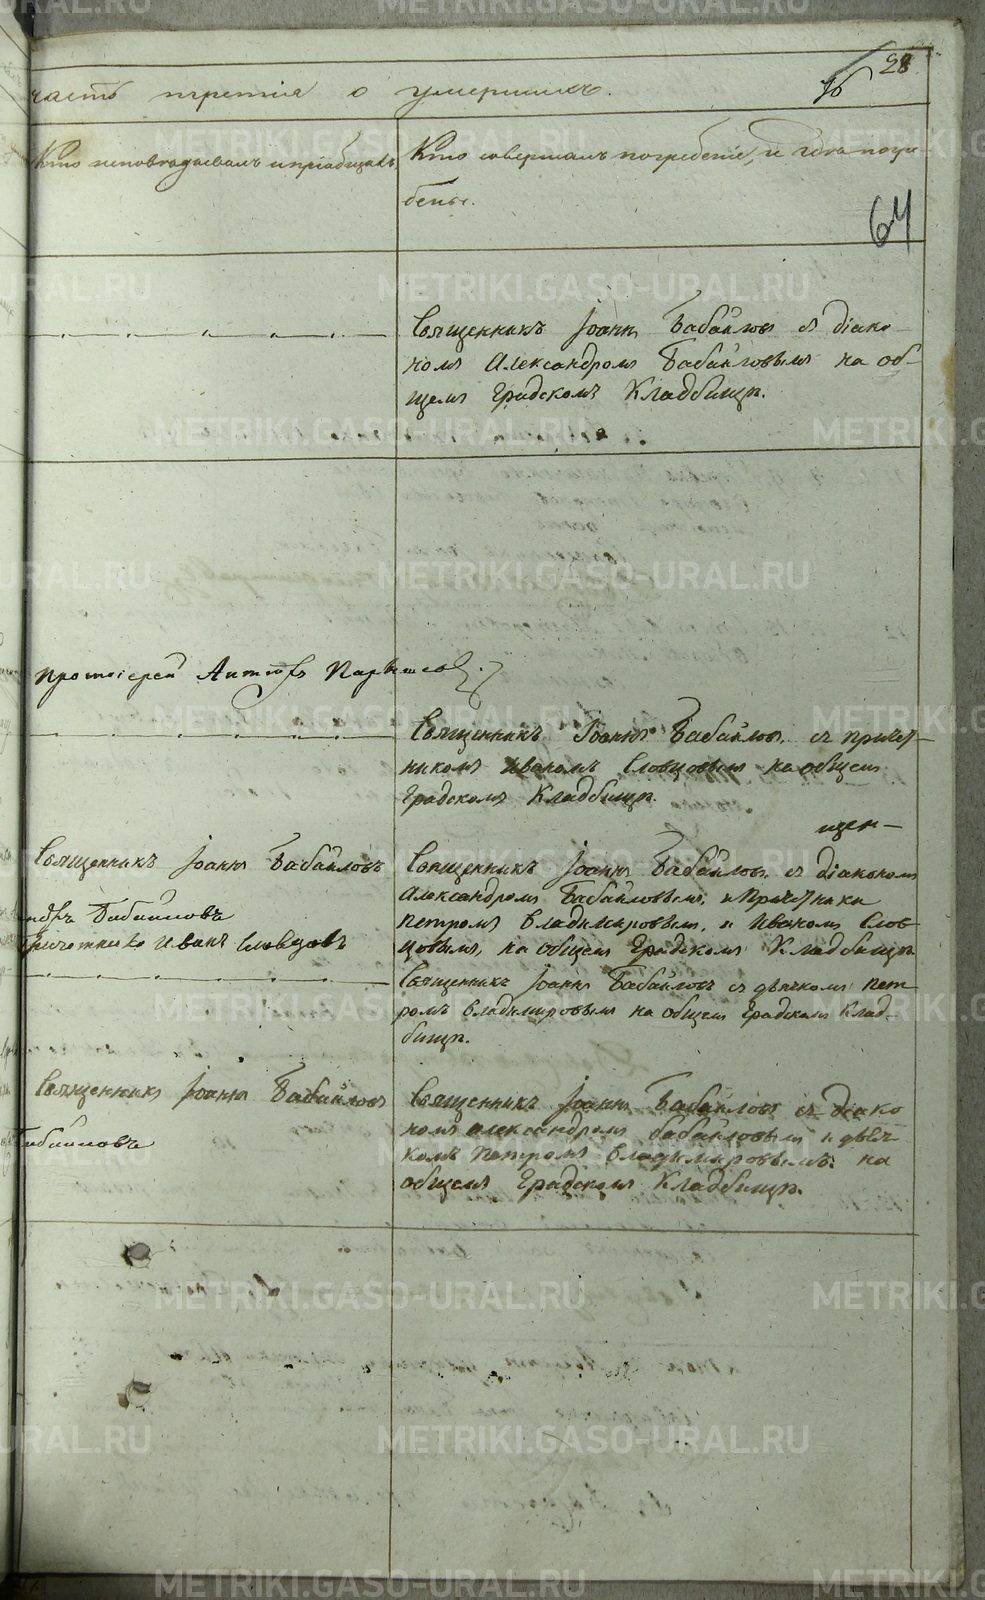 28
часть третiя о умершихъ.
16
Кто исповѣдывалъ и прiобщалъ,
Кто совершалъ погребенiе, и гдѣ погре-
бены.
64
Священникъ Iоаннъ Бабайловъ съ дiако-
номъ Александромъ Бабайловымъ на об-
щемъ Градскомъ Кладбищѣ.
Протоiерей
Священникъ Iоаннъ Бабайловъ съ причет-
никомъ Иваномъ Словцовымъ на общемъ
Градскомъ Кладбищѣ.
Священникъ Iоаннъ Бабайловъ
ндръ Бабайловъ
Причетникъ Иванъ Словцовъ
Священникъ Iоаннъ Бабайловъ съ дiакономъ
Александромъ Бабайловымъ, и Причетника
Петромъ Владимировымъ, и Иваномъ Слов
цовымъ, на общемъ Градскомъ Кладбищѣ
Священникъ Iоаннъ Бабайловъ съ дьячкомъ Пет
ромъ Владимировымъ на общемъ Градскомъ Клад-
бищѣ.
Священникъ Iоаннъ Бабайловъ
Бабайловъ
Священникъ Iоаннъ Бабайловъ съ дiако
номъ Александромъ Бабайловымъ и дьяч
комъ Петромъ Владимировымъ на
общемъ Градскомъ Кладбищѣ.
METRIKI.GASO-URAL.RU